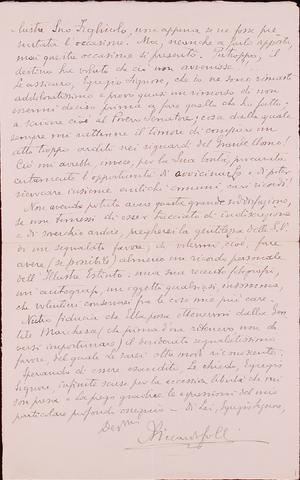 lustre Suo Figliolo, non appena se ne fosse pre-
sentata l'occasione. Ma, neanche a farlo apposta,
mai questa occasione si presentò. Purtroppo, il
destino ha voluto che ciò non avvenisse.
Le assicuro, Egregio Signore, che io ne sono rimasto
addoloratissimo e provo quasi un rimorso di non
essermi deciso prima a fare quello che ho fatto,
a scrivere cioè al Povero Senatore; cosa dalla quale
sempre mi trattenne il timore di compiere un
atto troppo ardito nei riguardi del Grande Uomo!
Ciò mi avrebbe, invece, per la Sua bontà, procurata
certamente l'opportunità di avvicinarlo e di poter
rievocare insieme antichi comuni cari ricordi!
Non avendo potuto avere questa grande soddisfazione,
se non temessi di esser tacciato di indiscrezione
e di soverchio ardire, pregherei la gentilezza della S.V.
di un segnalato favore; di volermi, cioè, fare
avere (se possibile) almeno un ricordo personale
dell'Illustre Estinto: una sua recente fotografia,
un autografo, un oggetto qualsiasi, insomma,
che volentieri conserverei fra le cose mie più care.
Nutro fiducia che Ella possa ottenermi dalla Gen-
tile Marchesa (che prima d'ora ritenevo non do-
versi importunare) il desiderato segnalatissimo
favore, del quale Le sarei oltre modo riconoscente.
Sperando di essere esaudito, Le chiedo, Egregio
Signore, infinite scuse per la eccessiva libertà che mi
son presa e La prego gradire le espressioni del mio
particolare profondo ossequio - Di Lei, Egregio Signore,
Dev.mo